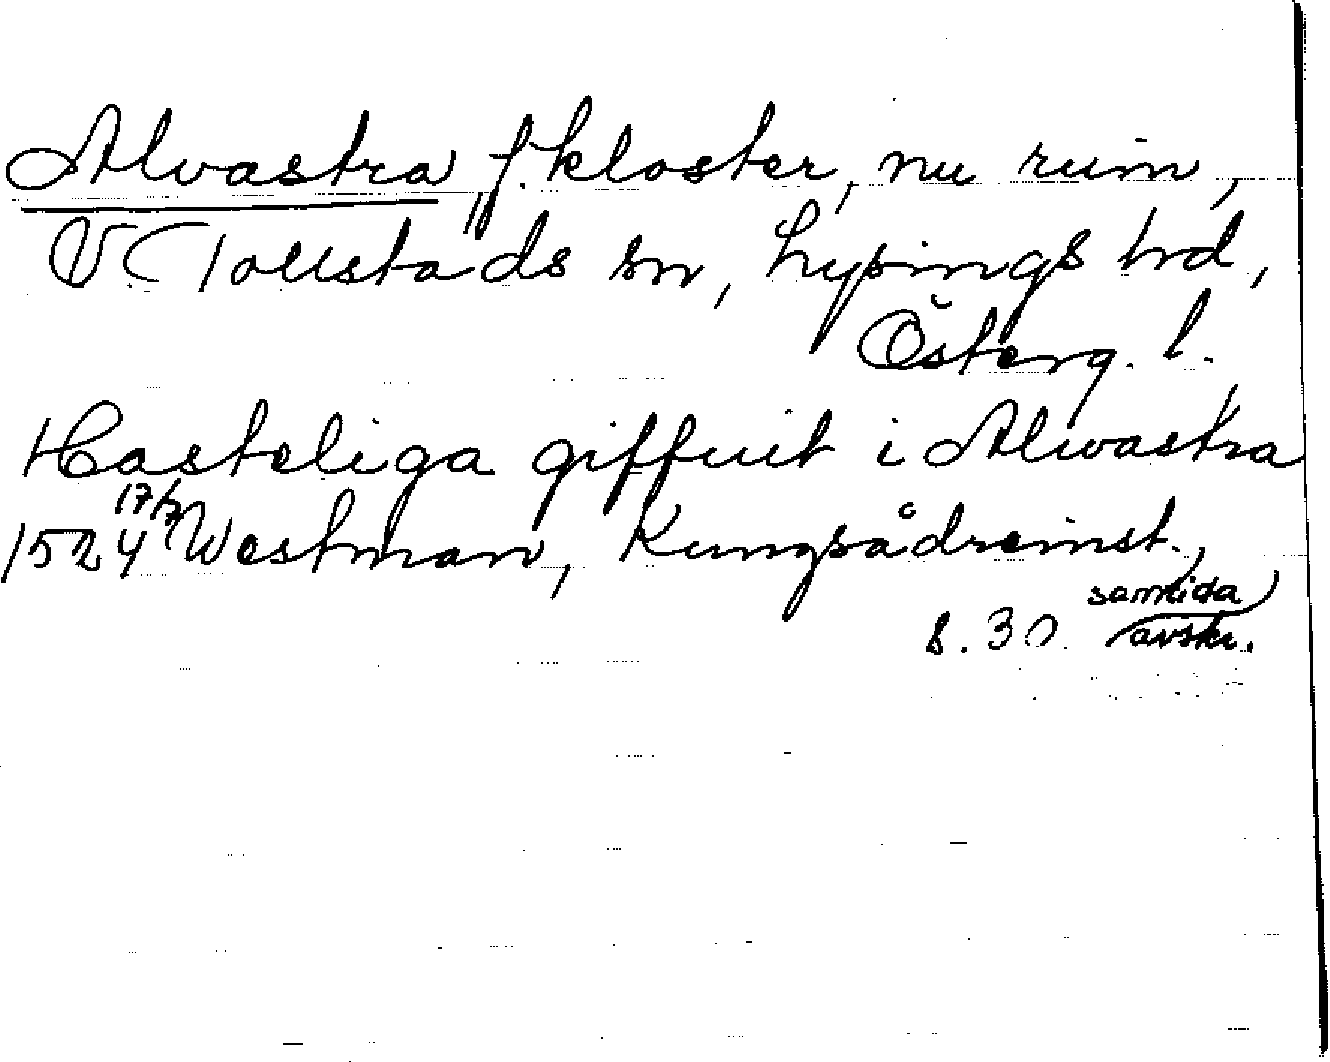 Alvastra, f. kloster, nu ruin,
V Tollstads sn, Lysings hd,
Österg. l.
Hasteliga giffuit i Alwastra
1524 17/7 Westman, Kungsådreinst.,
s. 30 samtida
avskr.